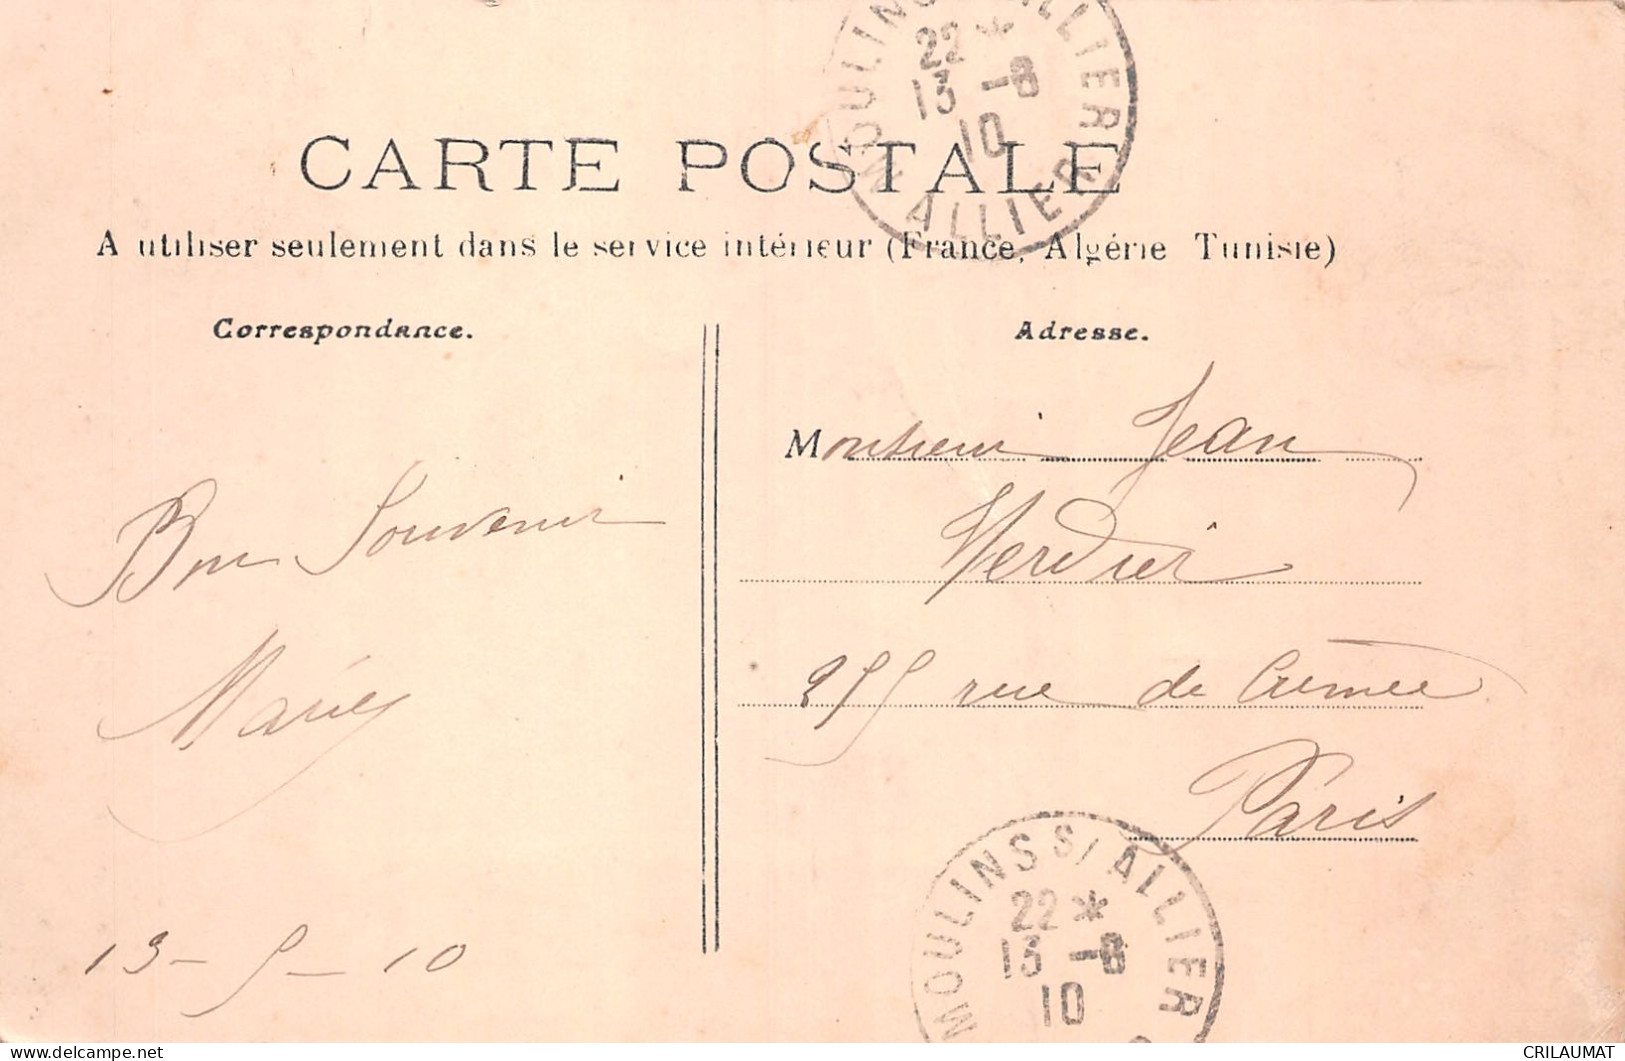 MOULINS S/ ALLIER
22*
13 -8
10
ALLIER
CARTE POSTALE
A utiliser seulement dans le service intérieur (France, Algérie Tunisie)
Correspondance.
Bon Souvenir
13- 5- 10
Adresse.
Monsieur Jean
Verdier
255 rue de Crimée
Paris
MOULINS S/ ALLIER
22*
13 -8
10
CRILAUMAT